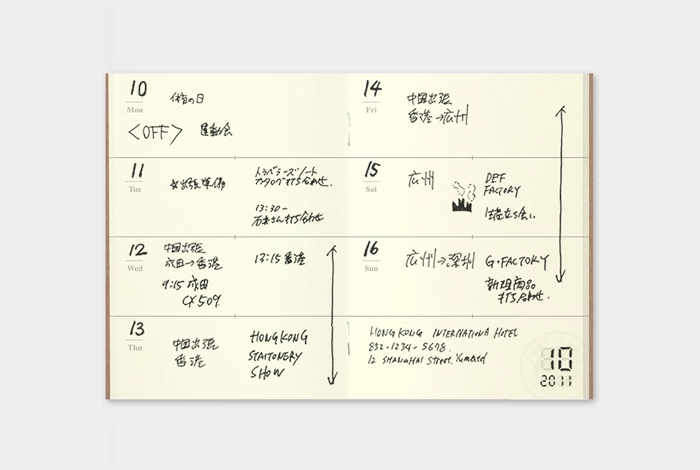 10
Mon
体育の日
<OFF> 運動会
11
Tue
出張準備
トラベラーズノート
カタログ打ち合わせ.
13:30-
打ち合わせ
12
Wed
中国出張
成田→香港
9:15 成田
CX509
13:15 香港
13
Thu
中国出張
香港
HONGKONG
STAITONERY
SHOW
14
Fri
中国出張
香港→広州
15
Sat
広州
DEF
FACTORY
生産立ち会い
16
Sun
広州→深圳
G・FACTORY
新規商品
打ち合わせ.
HONG KONG INTERNATIONA HOTEL
852-1234-5678.
12 SHANGHAI STREET,
10
2011